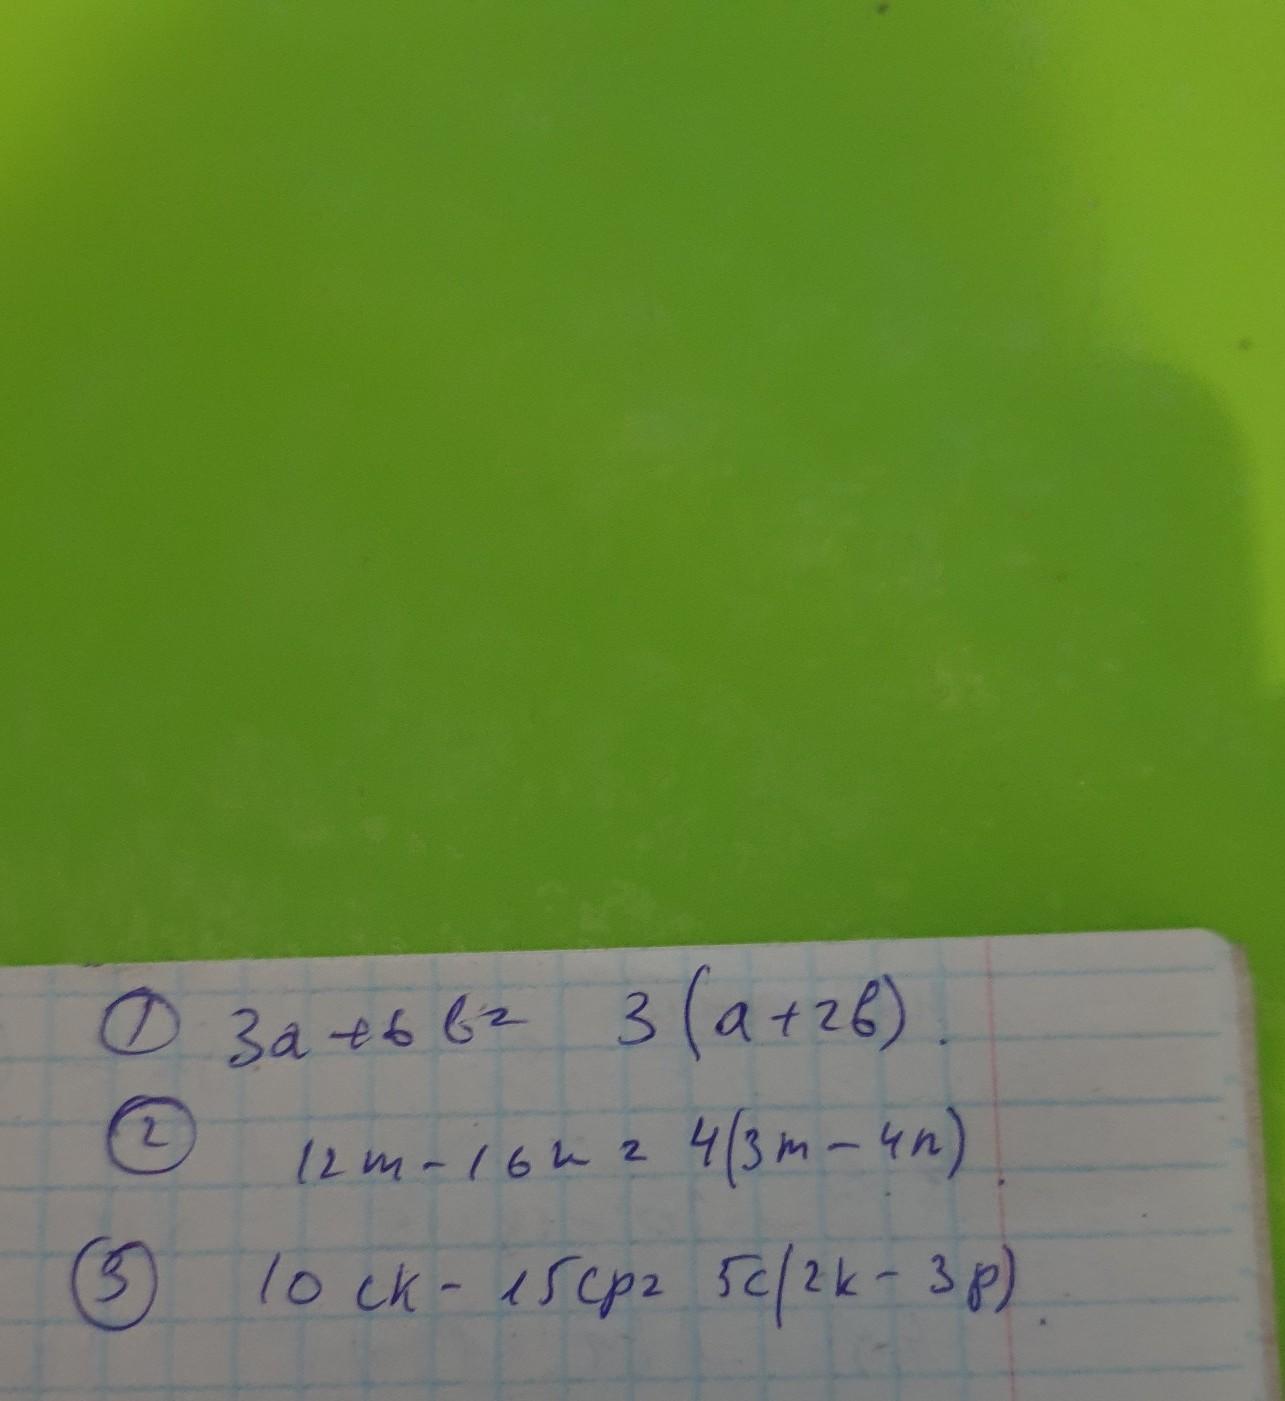 ① 3a + 6b = 3(a+2b).
② 12m - 16n = 4(3m - 4n).
③ 10ck - 15cp = 5c(2k - 3p).